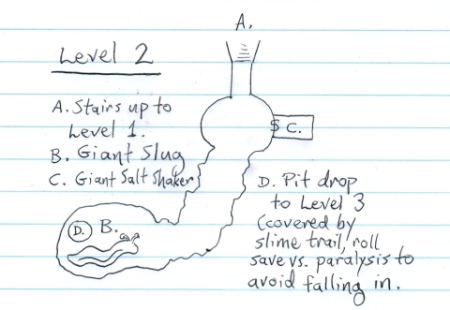 A.
Level 2
A. Stairs up to
Level 1.
B. Giant Slug
C. Giant Salt Shaker
$ C.
D. B.
D. Pit drop
to Level 3
(covered by
slime trail, roll
save vs. paralysis to
avoid falling in.